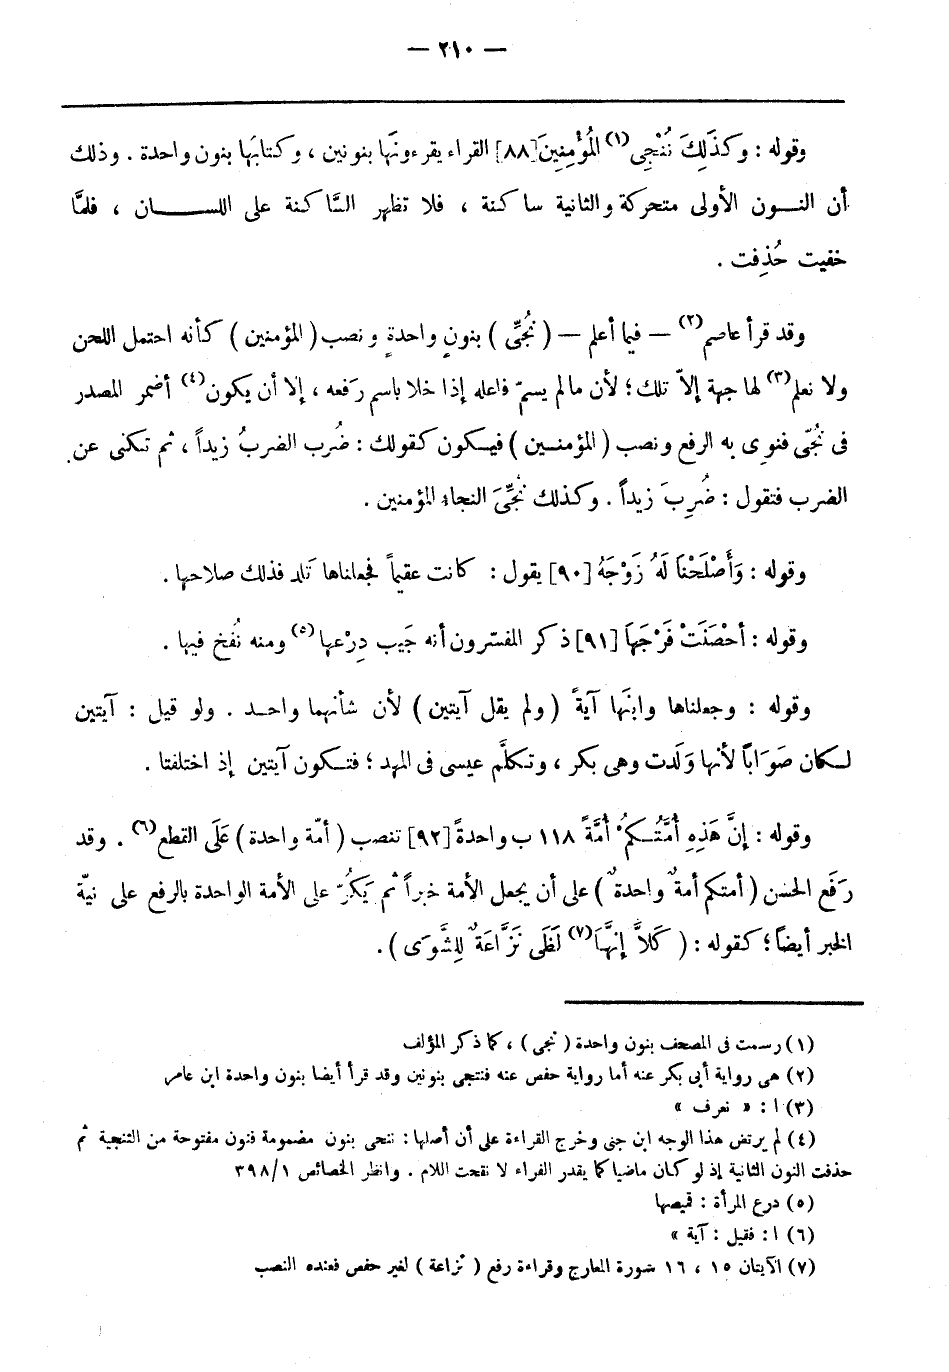 — ٢١٠ —
وقوله : وكذَلِكَ نُنْجِى(١) المُؤْمِنِينَ [٨٨] القراء يقرءونَها بنونين ، وكتابَها بنون واحدة . وذلك
أن النـون الأولى متحركة والثانية ساكنة ، فلا تظهر السَّاكنة على اللسـان ، فلمَّا
خفيت حُذِفت .
وقد قرأ عاصم(٢) — فيما أعلم — ( نُجِّى ) بنونٍ واحدةٍ ونصب ( المؤمنين ) كأنه احتمل اللحن
ولا نعلم(٣) لها جهة إلاّ تلك ؛ لأن مالم يسمّ فاعله إذا خلا باسم رَفعه ، إلا أن يكون(٤) أضمر المصدر
فى نُجِّى فنوى به الرفع ونصب ( المؤمنـين ) فيـكون كـقولك : ضُرب الضربُ زيداً ، ثم تـكنى عن
الضرب فتقول : ضُرِبَ زيداً . وكذلك نُجِّىَ النجاءُ المؤمنين .
وقوله : وَأَصْلَحْنَا لَهُ زَوْجَهُ [٩٠] يقول : كانت عقيماً فجعلناها تَلد فذلك صلاحها .
وقوله : أحْصَنَتْ فَرْجَهَا [٩١] ذكر المفسّرون أنه جَيب دِرْعها(٥) ومنه نُفخ فيها .
وقوله : وجعلناها وابنَها آيةً ( ولم يقل آيتين ) لأن شأنهما واحـد . ولو قيل : آيتين
لـكان صَوَاباً لأنها وَلَدت وهى بكر ، وتـكلَّم عيسى فى المهد ؛ فتـكون آيتين إذ اختلفتا .
وقوله : إنَّ هَذِهِ أُمَّتُـكُمُ أُمَّةً ١١٨ ب واحدةً [٩٢] تنصب ( أمّة واحدة ) عَلَى القطع(٦) . وقد
رَفَع الحسَن ( أمتكم أمةٌ واحدةٌ ) على أن يجعل الأمة خبراً ثم يَكُرّ على الأمة الواحدة بالرفع على نيّة
الخبر أيضاً ؛ كقوله : ( كَلاَّ إنَّهَا(٧) لَظَى نَزَّاعَةٌ لِلشَّوَى ) .
(١) رسمت فى المصحف بنون واحدة ( نجى ) ، كما ذكر المؤلف
(٢) هى رواية أبى بكر عنه أما رواية حفص عنه فننجى بنونين وقد قرأ أيضا بنون واحدة ابن عامر
(٣) ا : « نعرف »
(٤) لم يرتض هذا الوجه ابن جنى وخرج القراءة على أن أصلها : ننجى بنون مضمومة فنون مفتوحة من التنجية ثم
حذفت النون الثانية إذ لو كان ماضيا كما يقدر الفراء لا نفتحت اللام . وانظر الخصائص ٣٩٨/١
(٥) درع المرأة : قميصها
(٦) ا : فقيل : آية »
(٧) الآيتان ١٥ ، ١٦ سورة المعارج وقراءة رفع ( نزاعة ) لغير حفص فعنده النصب